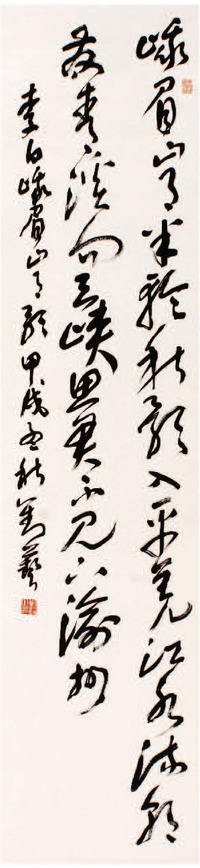 峨眉山月半輪秋影入平羌江水流夜
發清溪向三峽思君不見下渝州
李白峨眉山月歌甲戌孟秋劉藝